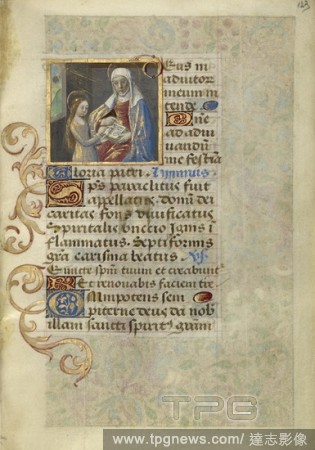 123
Eus in
adiutor
meum in
tende
Dne
ad adiu
uandū
me festina
Gloria patri. Ymnus.
Sps paraclitus fuit
appellatus. donū dei
caritas fons viuificatus
Spiritalis vnctio ignis i
flammatus. Septiformis
grā carisma beatus. Vs
Emitte spm tuum et creabunt
Et renouabis faciem tre
Omnipotens sem
piterne deus da nob
illam sancti spirit grām
TPG
www.tpgnews.com/ 達志影像